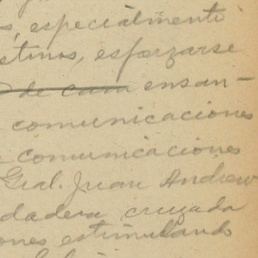 s, especialmente
stinos, esforzarse
de cara ensan-
comunicaciones
comunicaciones
Gral. Juan Andrew
dadera cruzada
ones estimulando